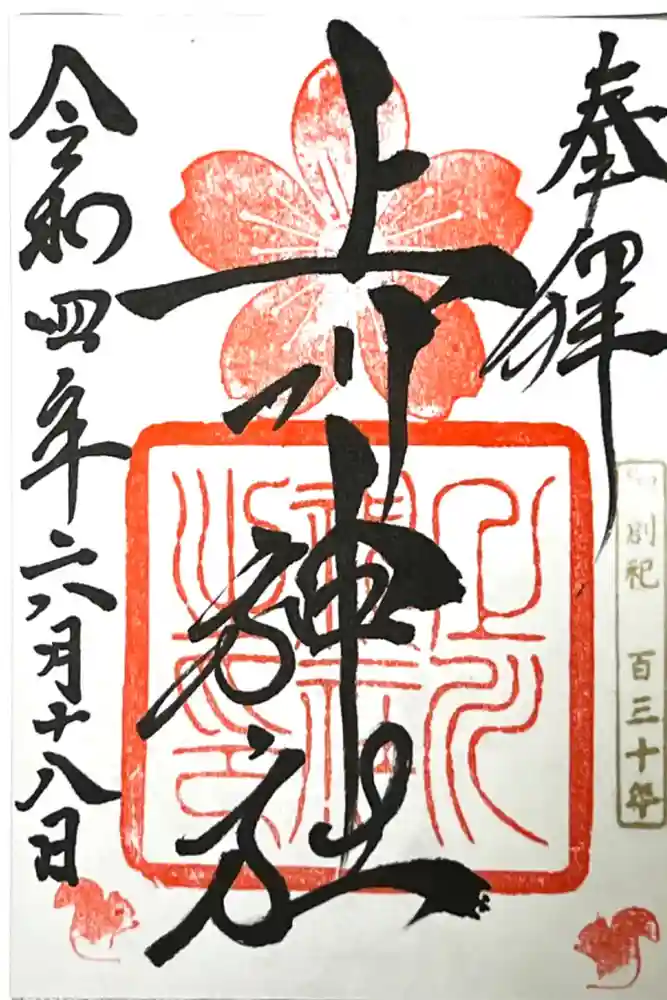 奉拝
別祀 百三十年
上川神社
上川神社之印
令和四年六月十八日